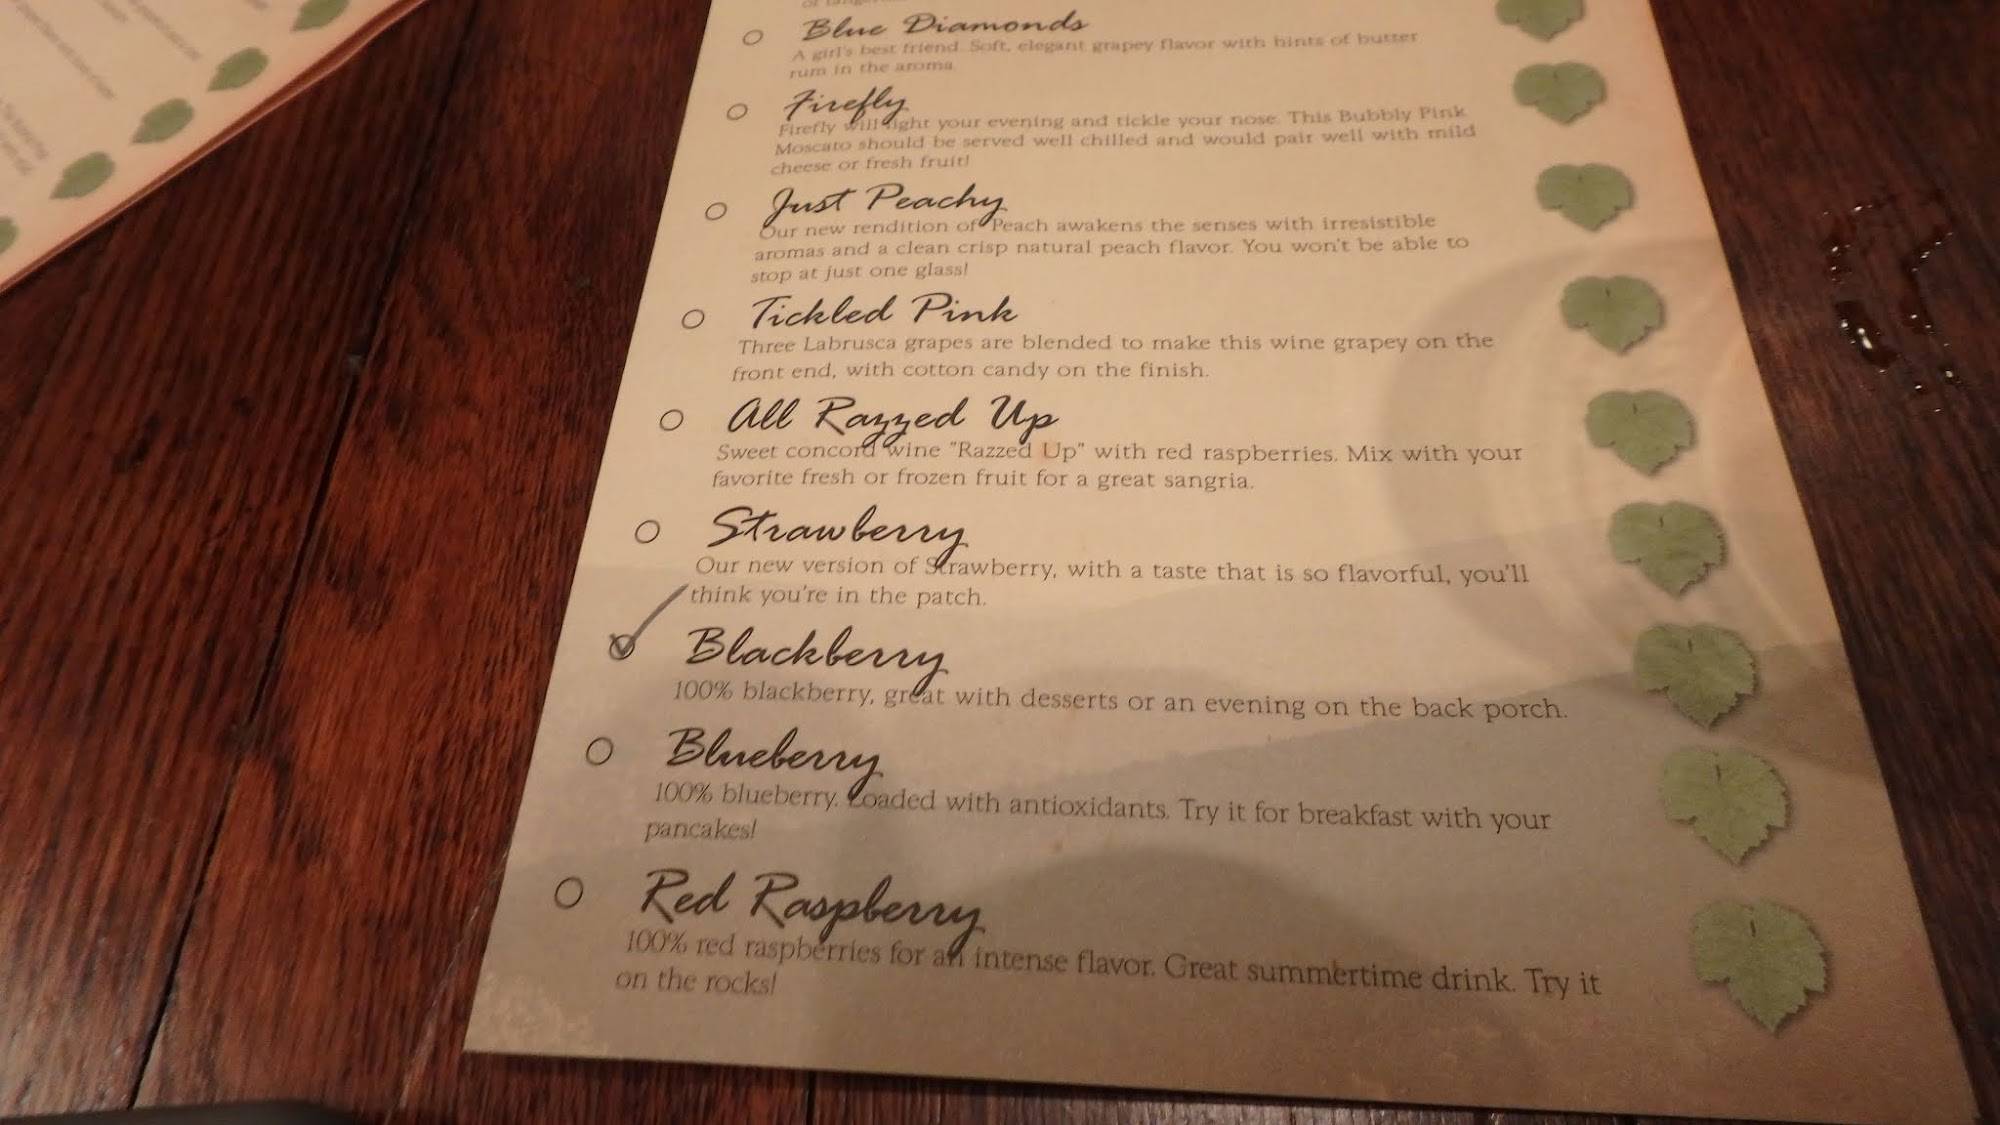 Blue Diamonds
A girl's best friend. Soft, elegant grapey flavor with hints of butter
rum in the aroma.
Firefly
Firefly will light your evening and tickle your nose. This Bubbly Pink
Moscato should be served well chilled and would pair well with mild
cheese or fresh fruit!
Just Peachy
Our new rendition of Peach awakens the senses with irresistible
aromas and a clean crisp natural peach flavor. You won't be able to
stop at just one glass!
Tickled Pink
Three Labrusca grapes are blended to make this wine grapey on the
front end, with cotton candy on the finish.
All Razzed Up
Sweet concord wine "Razzed Up" with red raspberries. Mix with your
favorite fresh or frozen fruit for a great sangria.
Strawberry
Our new version of Strawberry, with a taste that is so flavorful, you'll
think you're in the patch.
Blackberry
100% blackberry, great with desserts or an evening on the back porch.
Blueberry
100% blueberry. Loaded with antioxidants. Try it for breakfast with your
pancakes!
Red Raspberry
100% red raspberries for an intense flavor. Great summertime drink. Try it
on the rocks!